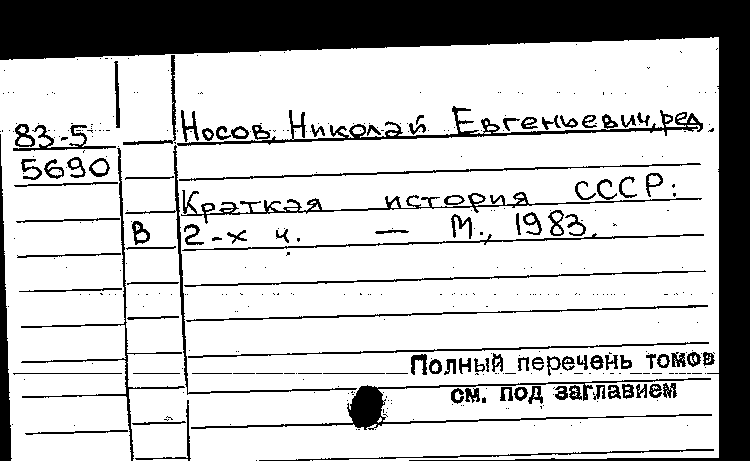 83-5 Носов, Николай Евгеньевич, ред.
5690
Краткая история СССР:
В 2-х ч. — М., 1983.
Полный перечень томов
см. под заглавием